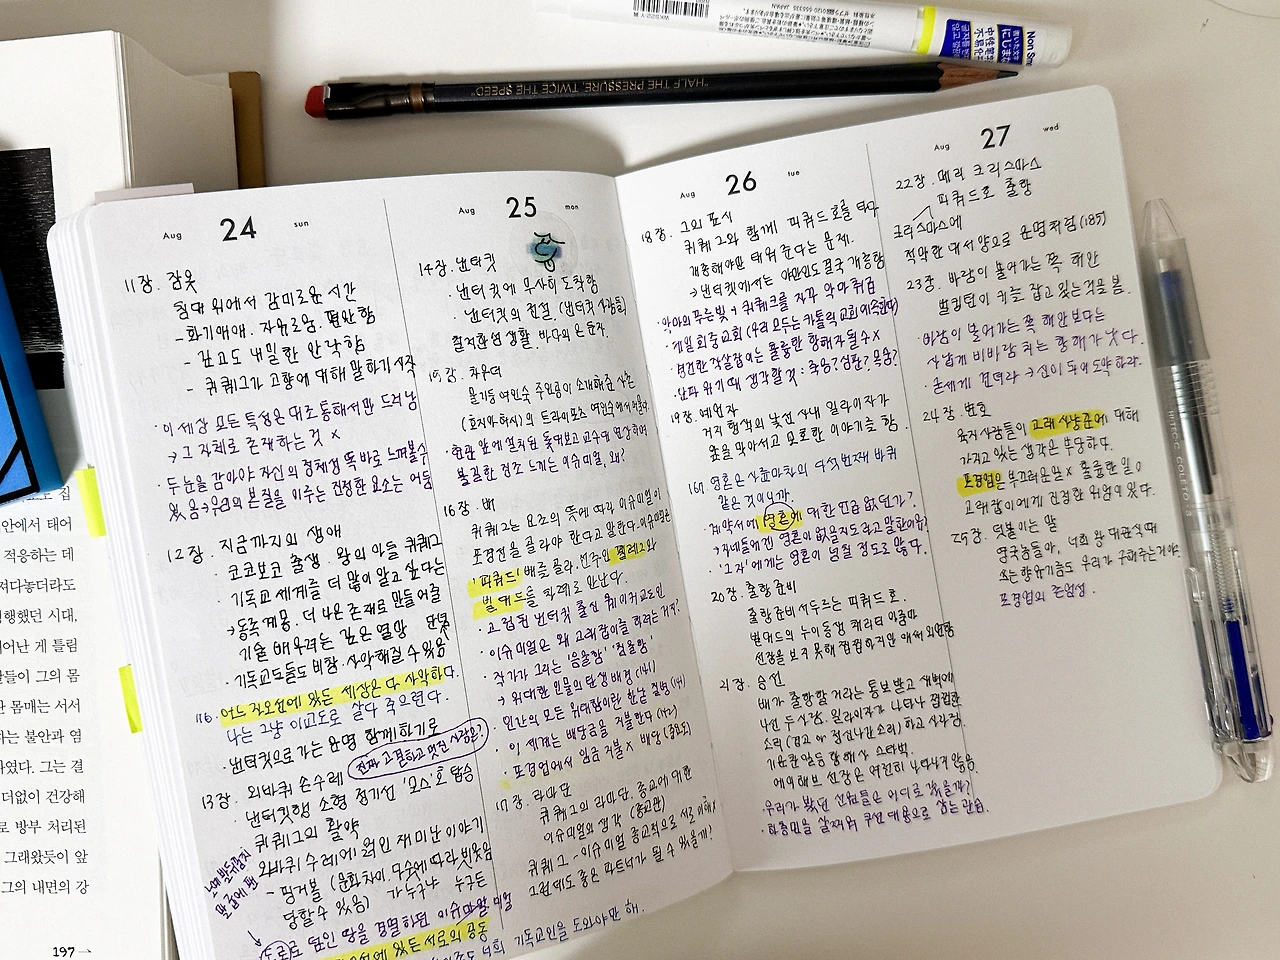 "HALF THE PRESSURE, TWICE THE SPEED"
Non Sm
JAPAN
Aug 24 sun
11장. 잠옷
침대 위에서 감미로운 시간
- 화기애애. 자유로움. 편안함
- 깊고도 내밀한 안락함
- 퀴퀘그가 고향에 대해 말하기 시작
· 이 세상 모든 특성은 대조 통해서만 드러남
→ 그 자체로 존재하는 것 ×
· 두 눈을 감아야 자신의 정체성 똑바로 느껴볼수
있음 → 우리의 본질을 이루는 진정한 요소는 어둠
12장. 지금까지의 생애
· 코코보코 출생. 왕의 아들 퀴퀘그
· 기독교 세계를 더 많이 알고 싶다는
→ 동족 계몽. 더 나은 존재로 만들어줄
기술 배우려는 깊은 열망
· 기독교도들도 비참. 사악해질 수 있음
116. 어느 자오선에 있든 세상은 다 사악하다.
나는 그냥 이교도로 살다 죽으련다.
· 낸터킷으로 가는 운명 함께하기로
진짜 고결하고 멋진 사람은?
13장. 외바퀴 손수레
· 낸터킷행 소형 정기선 '모스'호 탑승
퀴퀘그의 활약
외바퀴 수레에 얽힌 재미난 이야기
- 핑거볼 (문화차이. 무엇에 따라 비웃음
당할 수 있음) 가 누구나 누구든
(도로)로 덮인 땅을 경멸하던 이슈마엘
자오선에 있든 서로의 공동
기독교인을 도와야만 해.
Aug 25 mon
14장. 낸터킷
· 낸터킷에 무사히 도착함
· 낸터킷의 전설. (낸터킷 사람들)
철저한 섬 생활. 바다의 은둔자.
15장. 차우더
물기둥 여인숙 주인공이 소개해준 사촌
(호지아 허시)의 트라이포츠 여인숙에서 머물다.
· 현관 앞에 설치된 돛대보고 교수대 연상하며
불길한 징조 느끼는 이슈미얼. 왜?
16장. 배
퀴퀘그는 요조의 뜻에 따라 이슈미얼이
포경선을 골라야 한다고 말한다.
'피쿼드' 배를 골라, 선주인 펠레그와
빌대드를 차례로 만난다.
· 고집센 낸터킷 출신 퀘이커교도인
· 이슈미얼은 왜 고래잡이를 하려는 거지?
· 작가가 그리는 '음울함' '침울함'
→ 위대한 인물의 탄생 배경 (141)
· 인간의 모든 위대함이란 한낱 질병 (141)
· 이 세계는 배당금을 지불한다 (142)
· 포경업에서 임금 지불 × 배당 (중요도)
17장. 라마단
퀴퀘그의 라마단. 종교에 대한
이슈미얼의 생각 (종교관)
퀴퀘그 - 이슈미얼 종교적으로 서로 이해×
그런데도 좋은 파트너가 될 수 있을까?
Aug 26 tue
18장. 그의 표시
퀴퀘그와 함께 피쿼드호를 타다
개종해야만 태워 준다는 문제.
→ 낸터킷에서는 야만인도 결국 개종함
· 제일회중교회 (우리 모두는 카톨릭 교회에 속한다)
· 경건한 작살잡이는 훌륭한 항해자 될 수 ×
· 난파 위기 때 생각할 것 : 죽음? 심판? 목숨?
19장. 예언자
거지 행색의 낯선 사내 일라이자가
앞을 막아서고 모호한 이야기를 함.
169. 영혼은 사륜마차의 다섯번째 바퀴
같은 것이니까.
계약서에 영혼에 대한 언급 없던가?
→ 자네들에겐 영혼이 없을지도라고 말한 이유?
· '그자'에게는 영혼이 넘칠 정도로 많다.
20장. 출항 준비
출항 준비 서두르는 피쿼드 호.
빌대드의 누이동생 채리티 아줌마
선장을 보지 못해 찝찝하지만 애써 외면함
21장. 승선
배가 출항할 거라는 통보 받고 새벽에
나선 두 사람. 일라이자가 나타나
소리 (경고 or 정신나간 소리) 하고 사라짐.
기운찬 일등 항해사 스타벅.
에이해브 선장은 여전히 나타나지 않음.
우리가 봤던 선원들은 어디로 갔을까?
· 하층민을 살찌워 쿠션 대용으로 삼는 관습.
Aug 27 wed
22장. 메리 크리스마스
피쿼드호 출항
크리스마스에
적막한 대서양으로 운명처럼 (185)
23장. 바람이 불어가는 쪽 해안
벌킹턴이 키를 잡고 있는 것을 봄.
· 바람이 불어가는 쪽 해안보다는
사납게 비바람 치는 항해가 낫다.
· 굳세게 견뎌라 → 신이 되어 도약하라.
24장. 변호
육지사람들이 고래 사냥꾼에 대해
가지고 있는 생각은 부당하다.
포경업은 부끄러운일 × 훌륭한 일 ○
고래잡이에게 진정한 위엄이 있다.
25장. 덧붙이는 말
영국놈들아, 너희 왕 대관식 때
쓰는 향유기름도 우리가 구해주는거야
포경업의 존엄성.
안에서 태어
적응하는 데
저다놓더라도
행했던 시대.
어난 게 틀림
들이 그의 몸
몸매는 서서
하는 불안과 염
하였다. 그는 결
더없이 건강해
로 방부 처리된
그래왔듯이 앞
그의 내면의 강
197
HI-TEC-C COLETO